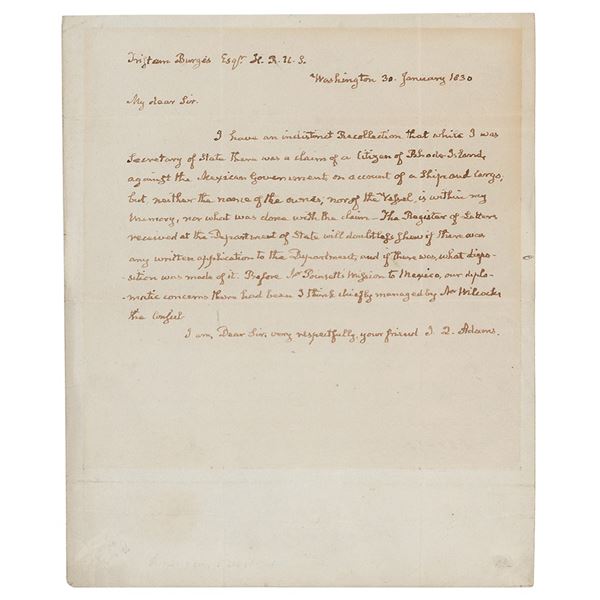 Tristam Burges Esqr. H. R. U. S.
Washington 30. January 1830
My dear Sir.
I have an indistinct Recollection that while I was
Secretary of State there was a claim of a Citizen of Rhode-Island,
against the Mexican Government on account of a Ship and Cargo,
but neither the name of the owner, nor of the Vessel, is within my
Memory, nor what was done with the claim — The Register of Letters
received at the Department of State will doubtless shew if there was
any written application to the Department, and if there was, what dispo-
sition was made of it. Before Mr Poinsett's Mission to Mexico, our diplo-
-matic concerns there had been I think chiefly managed by Mr Wilcocks
the Consul.
I am, Dear Sir, very respectfully, your friend J. Q. Adams.